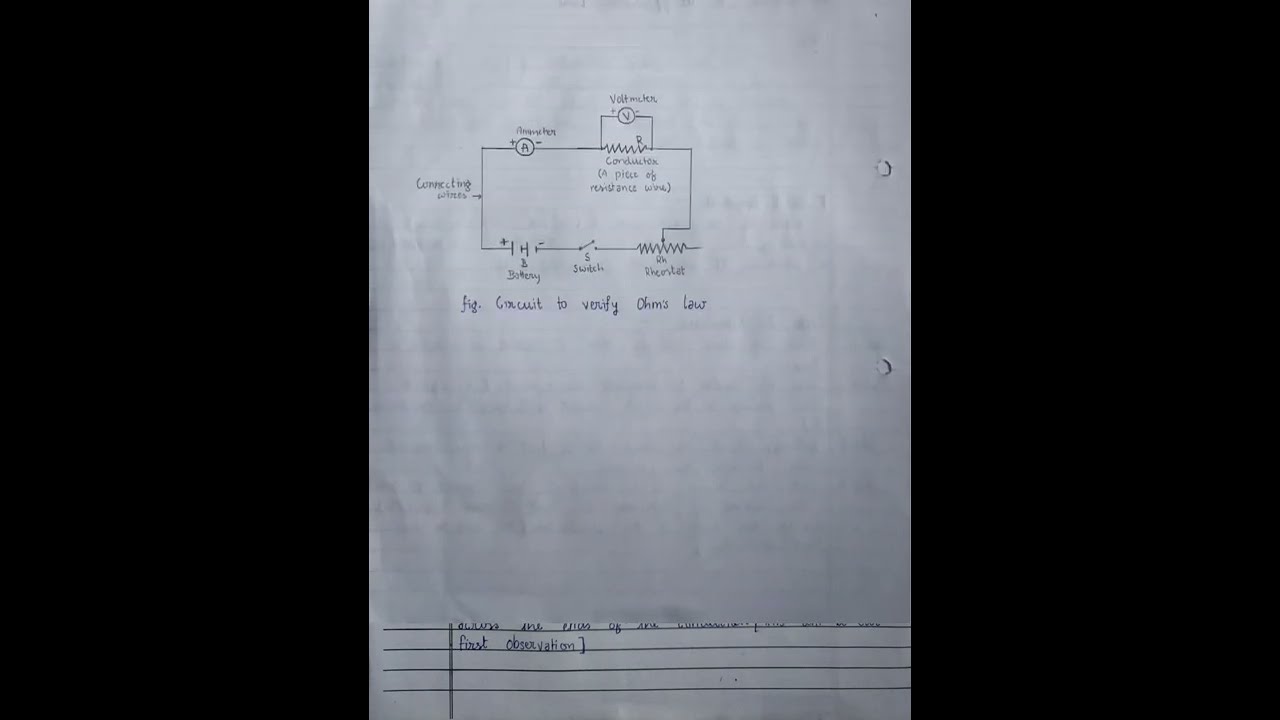 Voltmeter
+ V -
Ammeter
+ A -
R
Conductor
(A piece of
resistance wire)
Connecting
wires →
+ -
B
Battery
S
Switch
Rh
Rheostat
fig. Circuit to verify Ohm's law
across the ends of the
first observation]